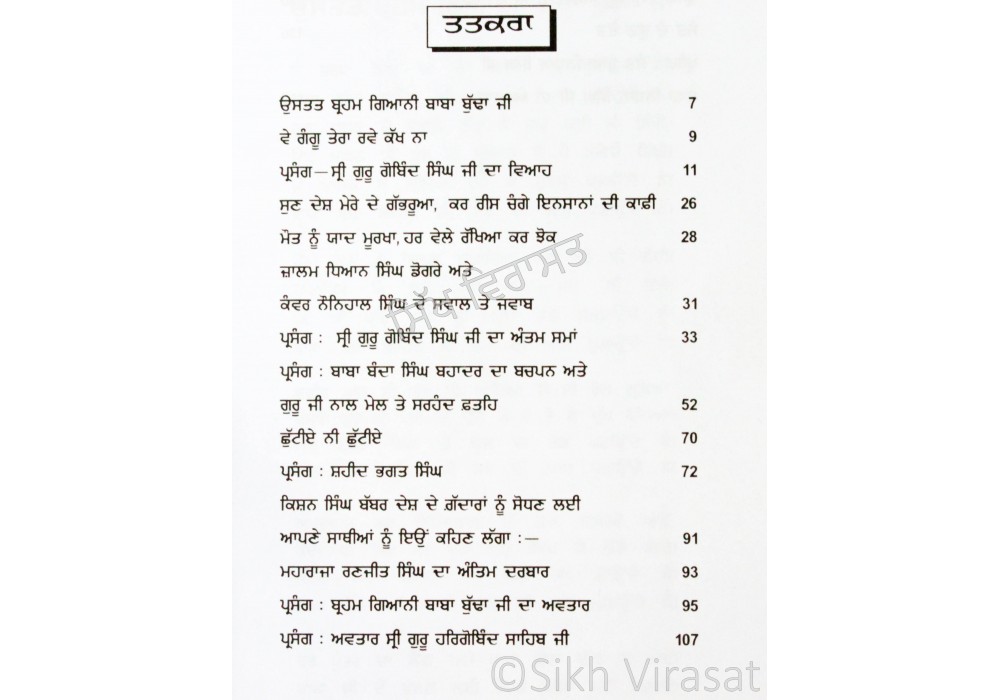 ਤਤਕਰਾ
ਉਸਤਤ ਬ੍ਰਹਮ ਗਿਆਨੀ ਬਾਬਾ ਬੁੱਢਾ ਜੀ 7
ਵੇ ਗੰਗੂ ਤੇਰਾ ਰਵੇ ਕੱਖ ਨਾ 9
ਪ੍ਰਸੰਗ—ਸ੍ਰੀ ਗੁਰੂ ਗੋਬਿੰਦ ਸਿੰਘ ਜੀ ਦਾ ਵਿਆਹ 11
ਸੁਣ ਦੇਸ਼ ਮੇਰੇ ਦੇ ਗੱਭਰੂਆ, ਕਰ ਰੀਸ ਚੰਗੇ ਇਨਸਾਨਾਂ ਦੀ ਕਾਫ਼ੀ 26
ਮੌਤ ਨੂੰ ਯਾਦ ਮੂਰਖਾ, ਹਰ ਵੇਲੇ ਰੱਖਿਆ ਕਰ ਝੋਕ 28
ਜ਼ਾਲਮ ਧਿਆਨ ਸਿੰਘ ਡੋਗਰੇ ਅਤੇ
ਕੰਵਰ ਨੌਨਿਹਾਲ ਸਿੰਘ ਦੇ ਸਵਾਲ ਤੇ ਜਵਾਬ 31
ਪ੍ਰਸੰਗ : ਸ੍ਰੀ ਗੁਰੂ ਗੋਬਿੰਦ ਸਿੰਘ ਜੀ ਦਾ ਅੰਤਮ ਸਮਾਂ 33
ਪ੍ਰਸੰਗ : ਬਾਬਾ ਬੰਦਾ ਸਿੰਘ ਬਹਾਦਰ ਦਾ ਬਚਪਨ ਅਤੇ
ਗੁਰੂ ਜੀ ਨਾਲ ਮੇਲ ਤੇ ਸਰਹੰਦ ਫ਼ਤਹਿ 52
ਛੁੱਟੀਏ ਨੀ ਛੁੱਟੀਏ 70
ਪ੍ਰਸੰਗ : ਸ਼ਹੀਦ ਭਗਤ ਸਿੰਘ 72
ਕਿਸ਼ਨ ਸਿੰਘ ਬੱਬਰ ਦੇਸ਼ ਦੇ ਗ਼ੱਦਾਰਾਂ ਨੂੰ ਸੋਧਣ ਲਈ
ਆਪਣੇ ਸਾਥੀਆਂ ਨੂੰ ਇਉਂ ਕਹਿਣ ਲੱਗਾ :— 91
ਮਹਾਰਾਜਾ ਰਣਜੀਤ ਸਿੰਘ ਦਾ ਅੰਤਿਮ ਦਰਬਾਰ 93
ਪ੍ਰਸੰਗ : ਬ੍ਰਹਮ ਗਿਆਨੀ ਬਾਬਾ ਬੁੱਢਾ ਜੀ ਦਾ ਅਵਤਾਰ 95
ਪ੍ਰਸੰਗ : ਅਵਤਾਰ ਸ੍ਰੀ ਗੁਰੂ ਹਰਿਗੋਬਿੰਦ ਸਾਹਿਬ ਜੀ 107
ਸਿੱਖ ਵਿਰਾਸਤ
©Sikh Virasat